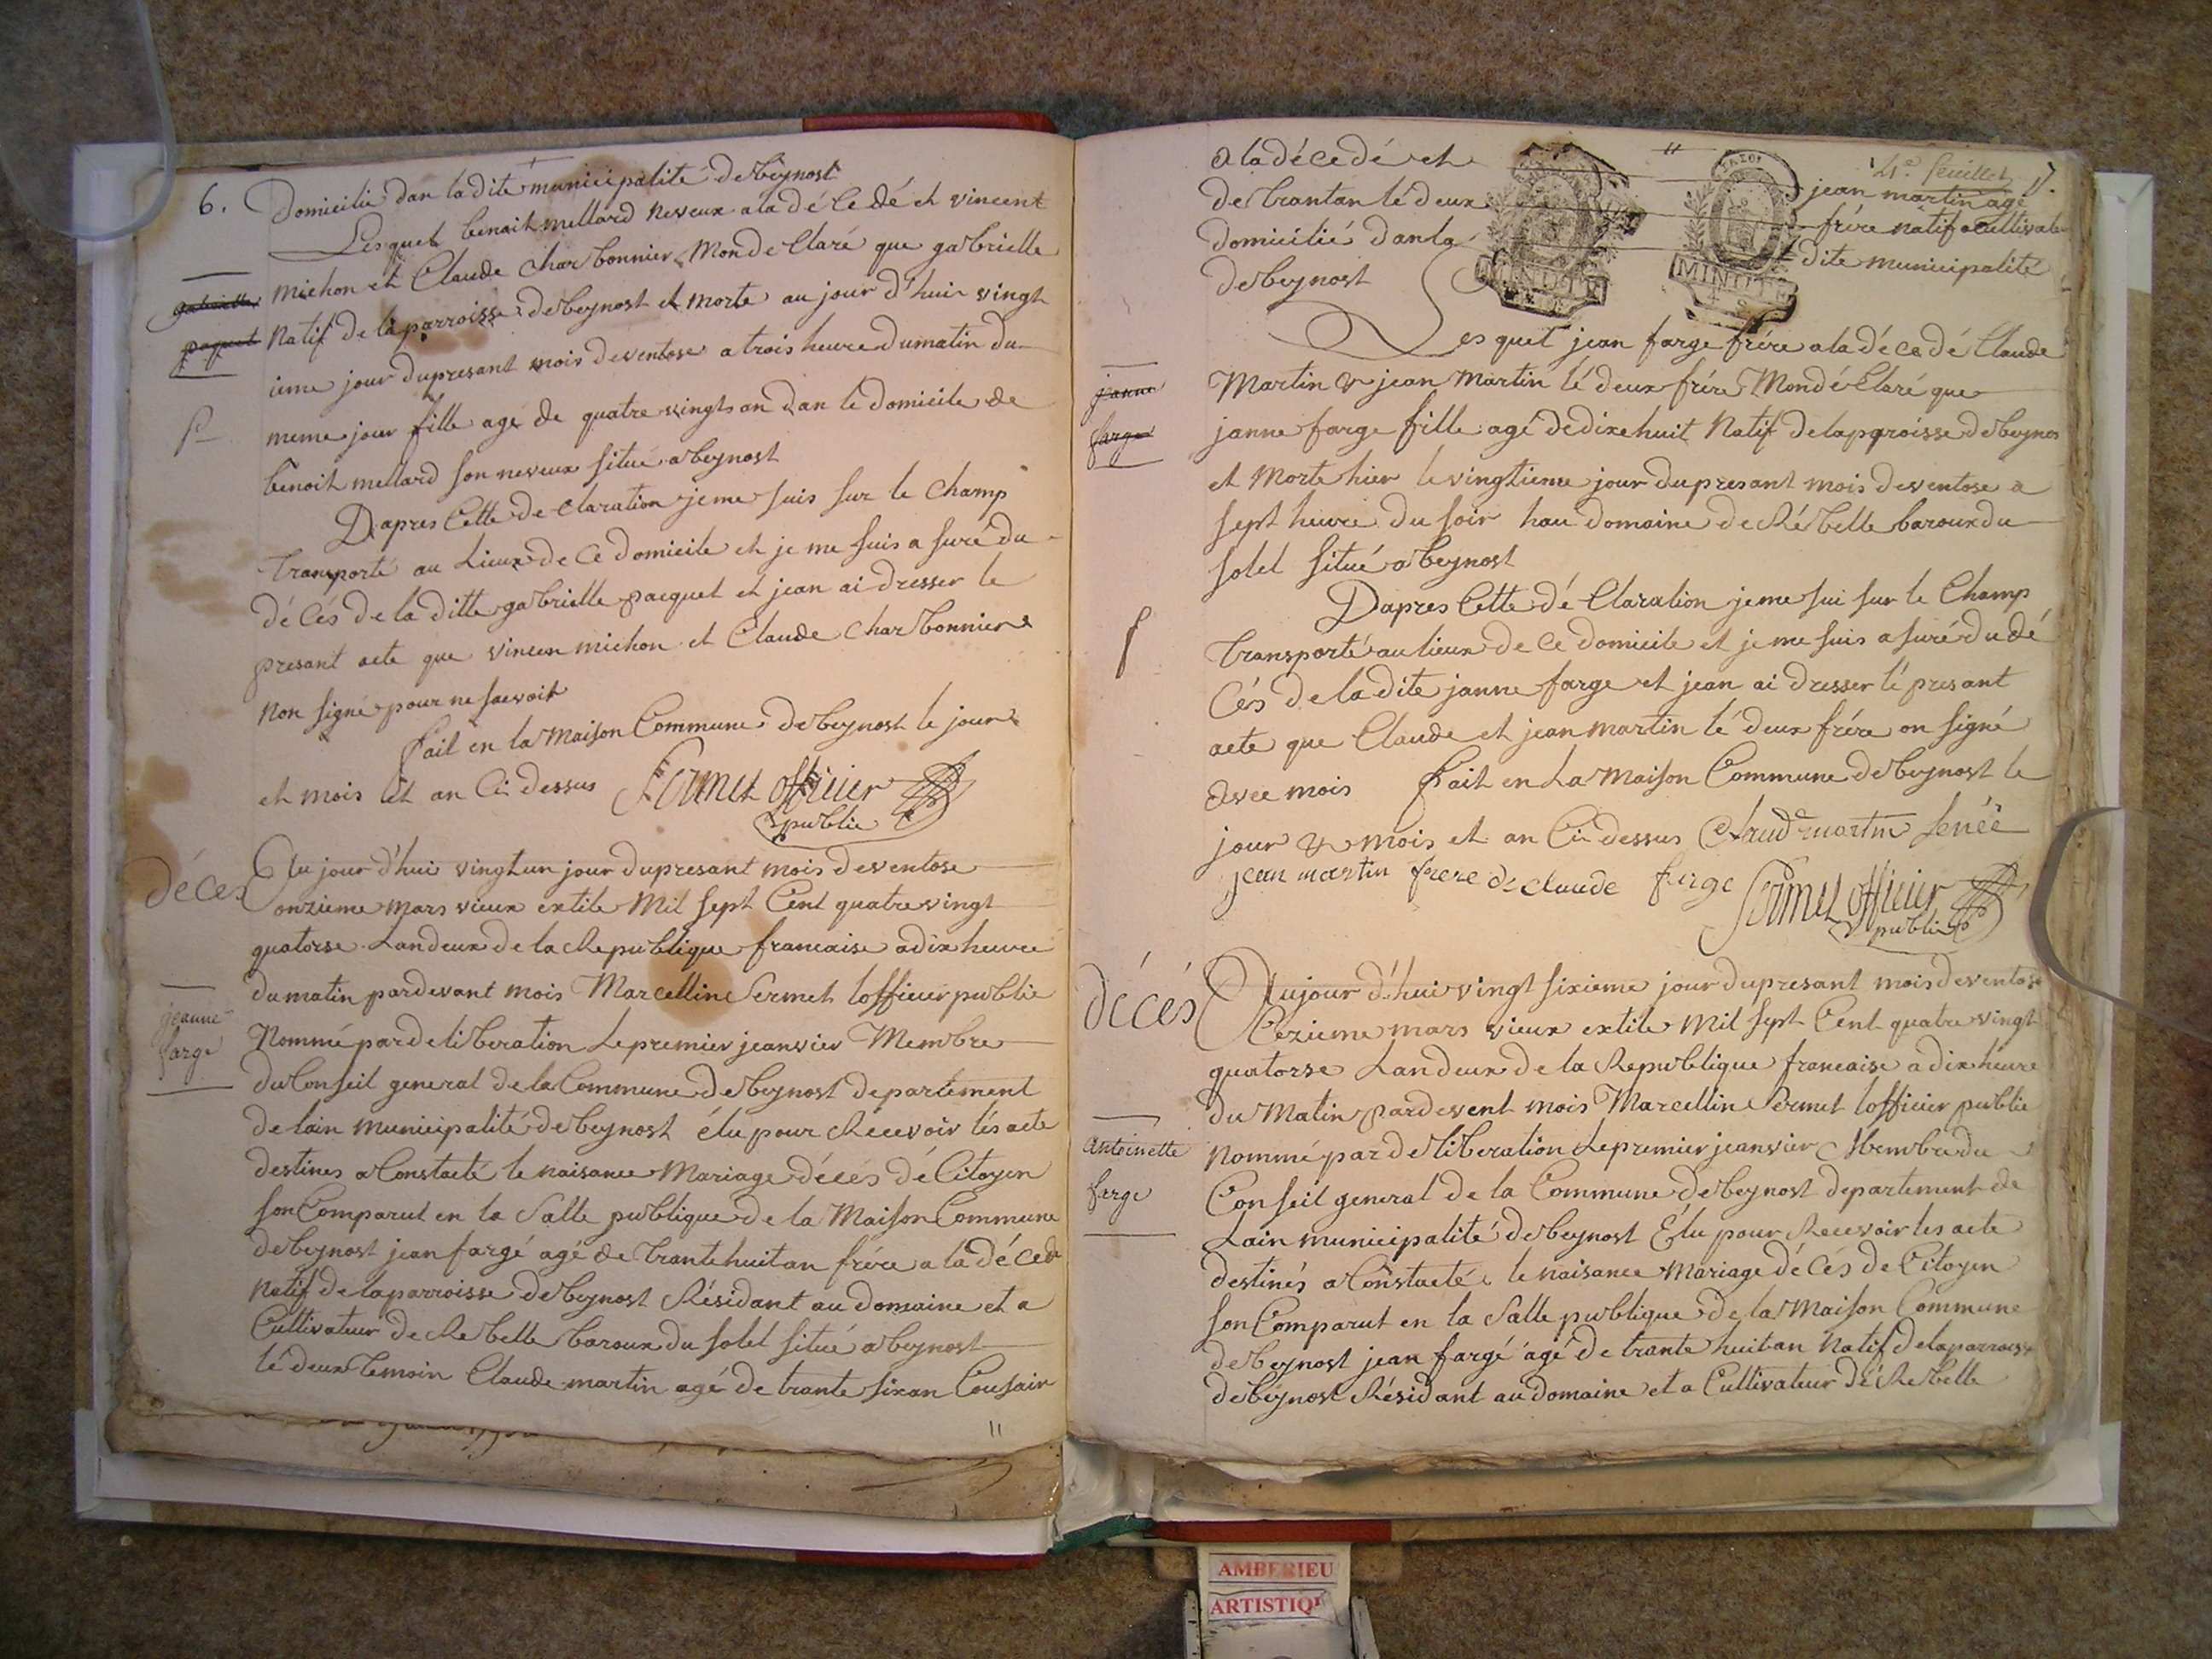 6.
Domicilié dan la dite municipalité de beynost
Lesquel benoit mellard neveux a la décedé et vincent
michon et Claude Charbonnier Mon declaré que gabrielle
gabrielle
paquet
Natif de la parroisse de beynost et morte au jour d'hui vingt
ieme jour du presant mois de ventose a trois heure du matin du
meme jour fille agé de quatre vingts an dan le domicile de
benoit mellard son neveux situé a beynost
D'apres Cette declaration je me suis sur le champ
transporté au Lieux de ce domicile et je me suis a suré du
décés de la ditte gabrielle pacquet et jean ai dresser le
presant acte que vincen michon et Claude charbonnier
non signé pour ne saevoir
fait en la Maison Commune de beynost le jour
et mois et an Ci dessus Sermet officier
public
déces
Au jour d'hui vingt un jour du presant mois de ventose
onzieme mars vieux extile Mil sept Cent quatre vingt
quatorse Landeux de la Republique francaise a dix heure
du matin pardevant mois Marcelline Sermet lofficier public
jeanne
farge
Nommé par deliberation Le premier jeanvier Membre
du Conseil general de la Commune de beynost departement
de lain municipalité de beynost élu pour Recevoir lés acte
destines a Constaeté le naisance Mariage décés dé Citoyen
son Comparut en la Salle publique de la Maison Commune
de beynost jean fargé agé de trante huit an frére a la décedé
natif de la parroisse de beynost Résidant au domaine et a
Cultivateur de Rebelle baroux du solel situé a beynost
lé deux temoin Claude martin agé de trante sixan Cousain
11
4e feuillet 7.
a la décedé et jean martin agé
de trantan lé deux frére natif a Cultivate
domicilié dan la dite municipalité
de beynost
MINUTE
MINUTE
Lesquel jean farge frére a la décedé Claude
janne
farge
Martin & jean Martin lé deux frére Mon déClaré que
janne farge fille agé de dixe huit Natif de la paroisse de beynos
et Morte hier le vingtieme jour du presant mois de ventose a
sept heure du soir hau domaine de Rébelle baroux du
solel situé a beynost
D'apres Cette déClaration je me sui sur le Champ
transporté au lieux de ce domicile et je me suis a suré du dé
Cés de la dite janne farge et jean ai dresser lé presant
acte que Claude et jean martin lé deux frére on signé
avec mois fait en la Maison Commune de beynost le
jour & mois et an Ci dessus Claude martin
jean martin frere de claude farge Sermet officier
public
décés
Aujour d'hui vingt sixieme jour du presant mois de ventose
Cezieme mars vieux extile Mil sept Cent quatre vingt
quatorse Landeux de la Republique francaise a dix heure
du Matin pardevent mois Marcellin Sermet lofficier public
antoinette
farge
nommé par deliberation Le premier jeanvier Membre du
Conseil general de la Commune de beynost departement de
Lain municipalité de beynost Élu pour Recevoir les acte
destinés a Constaeté le naisance Mariage déCés de Citoyen
son Comparut en la Salle publique de la Maison Commune
de beynost jean fargé agé de trante huit an Natif de la parroisse
de beynost Résidant au domaine et a Cultivateur dé Rebelle
AMBERIEU
ARTISTIQ